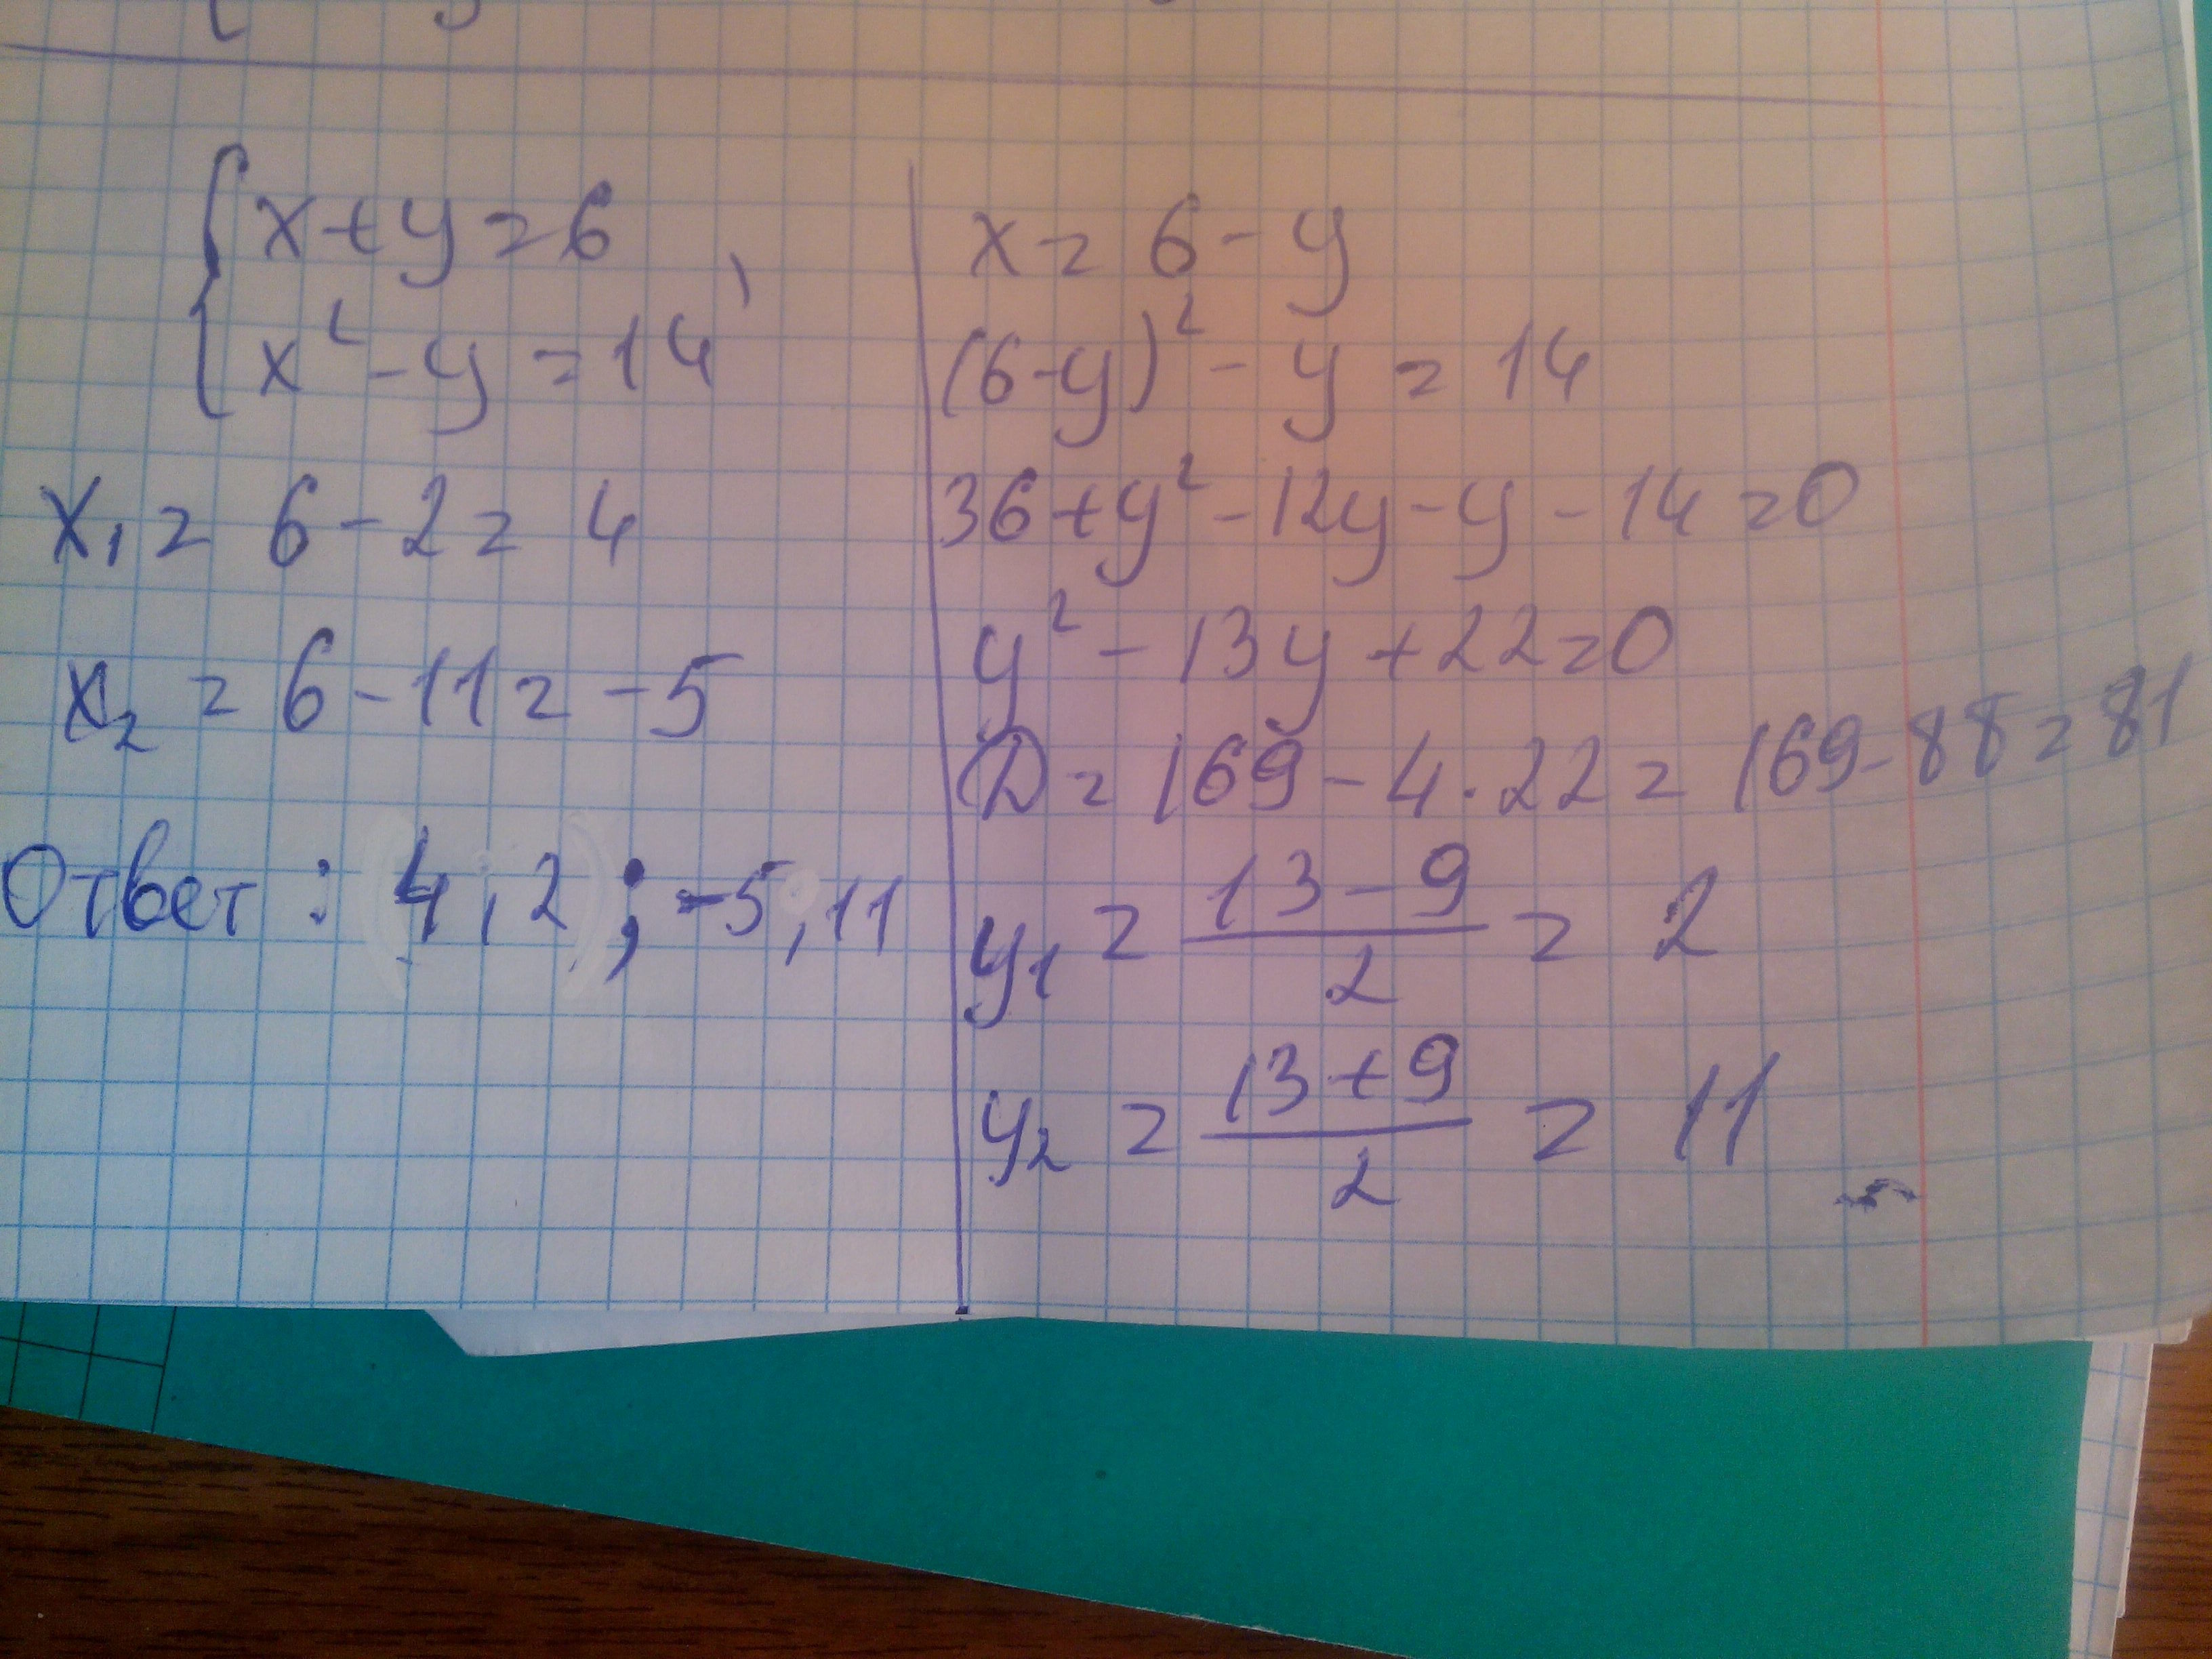 x+y=6
x²-y=14,
x₁=6-2=4
x₂=6-11=-5
Ответ: 4,2;-5,11
x=6-y
(6-y)²-y=14
36+y²-12y-y-14=0
y²-13y+22=0
D=169-4·22=169-88=81
y₁=13-9/2=2
y₂=13+9/2=11